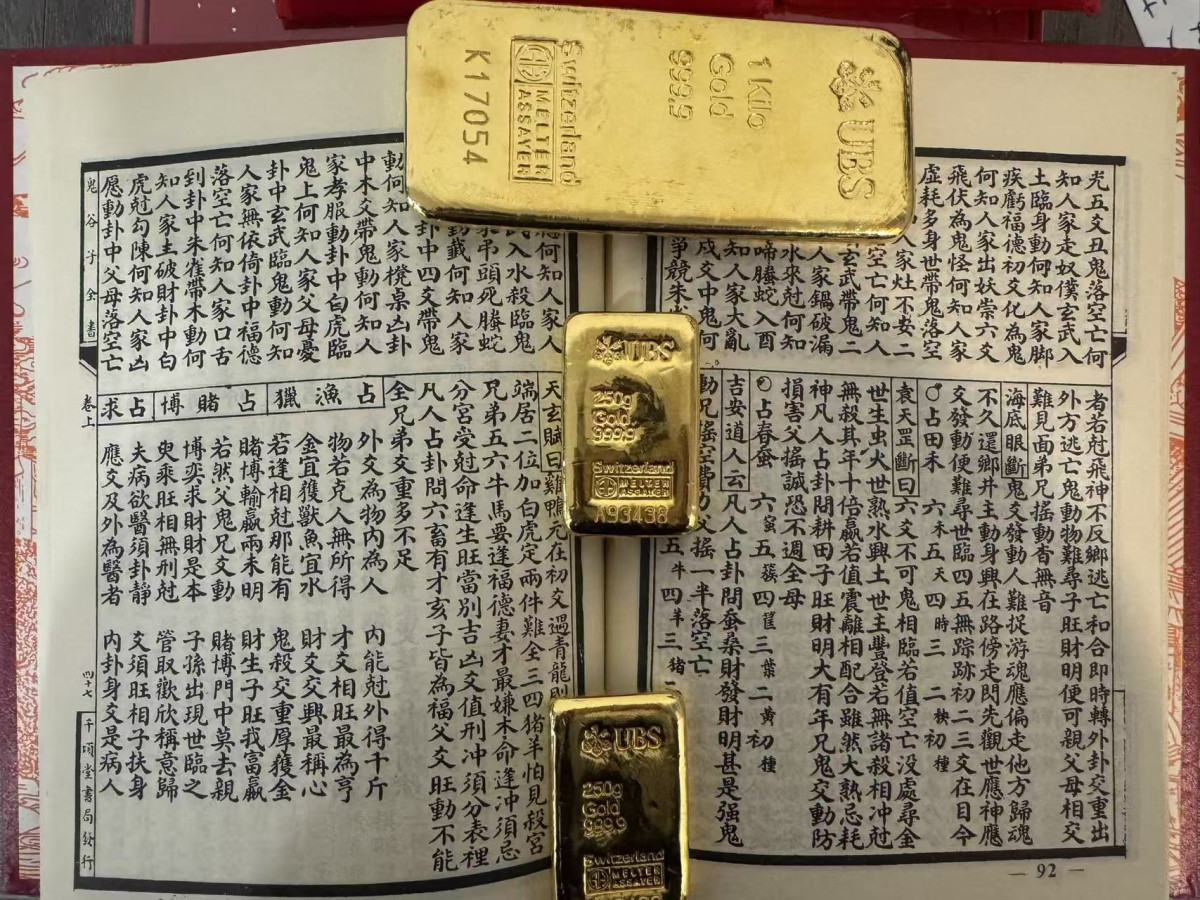 UBS
1 Kilo
Gold
999.9
Switzerland
MELTER
ASSAYER
K17054
UBS
250g
Gold
999.9
Switzerland
MELTER
ASSAYER
A93438
UBS
250g
Gold
999.9
Switzerland
MELTER
ASSAYER
光五爻丑鬼落空亡何
知人家走奴僕玄武入
土臨身動何知人家脚
疾虧福德初爻化為鬼
何知人家出妖祟六爻
飛伏為鬼怪何知人家
虛耗多身世帶鬼落空
人家灶不安二
空亡何知人
玄武帶鬼二
人家鍋破漏
水來尅何知
啼螣蛇入酉
知人家大亂
戌爻中鬼何
爭競朱
者若尅飛神不反鄉逃亡和合即時轉外卦交重出
外方逃亡鬼動物難尋子旺財明便可親父母相交
難見面弟兄搖動杳無音
海底眼斷鬼爻發動人難捉游魂應偏走他方歸魂
不久還鄉井主動身興在路傍走閃先觀世應神應
交發動便難尋世臨四五無踪跡初二三爻在目今
♂占田禾 六木五天四時三 二秧初種
袁天罡斷曰六爻不可鬼相臨若值空亡沒處尋金
世生虫火世熟水興土世主豐登若無諸殺相冲尅
無殺其年十倍贏若值震離相配合雖然大熟忌耗
神凡人占卦問耕田子旺財明大有年兄鬼交動防
損害父搖誠恐不週全母
占春蚕 六 五簇四筐三葉二黄初種
吉安道人云凡人占卦問蚕桑財發財明甚是强鬼
動兄搖空費力父搖一半落空亡
五牛四羊三猪
92
何知人家人
武入水殺臨鬼
家弔頭死螣蛇
動載何知人家
卦中四爻帶鬼
動何知人家櫈桌凶卦
中木爻帶鬼動何知人
家孝服動卦中白虎臨
鬼上何知人家父母憂
卦中玄武臨鬼動何知
人家無依倚卦中福德
落空亡何知人家口舌
到卦中朱雀帶木動何
知人家主破財卦中白
虎尅勾陳何知人家凶
愿動卦中父母落空亡
天玄賦曰雞鴨元在初爻遇青龍則
端居二位加白虎定兩件難全三四猪羊怕見殺宮
兄弟五六牛馬要逢福德妻才最嫌木命逢冲須忌
分宮受尅命逢生旺當別吉凶爻值刑冲須分表裡
凡人占卦問六畜有才亥子皆為福父爻旺動不能
全兄弟爻重多不足
占漁獵
外爻為物內為人 內能尅外得千斤
物若克人無所得 才爻相旺最為亨
金宜獲獸魚宜水 財爻交興最稱心
若逢相尅那能有 鬼殺交重厚獲金
占賭博
賭博輸贏兩未明 財生子旺我富贏
若然父鬼兄爻動 賭博門中莫去親
博奕求財財是本 子孫出現世臨之
臾乘旺相無刑尅 管取歡欣稱意歸
占求
夫病欲醫須卦靜 爻須旺相子扶身
應爻及外為醫者 內卦身爻是病人
鬼谷子全書
卷上
四十七
千頃堂書局發行